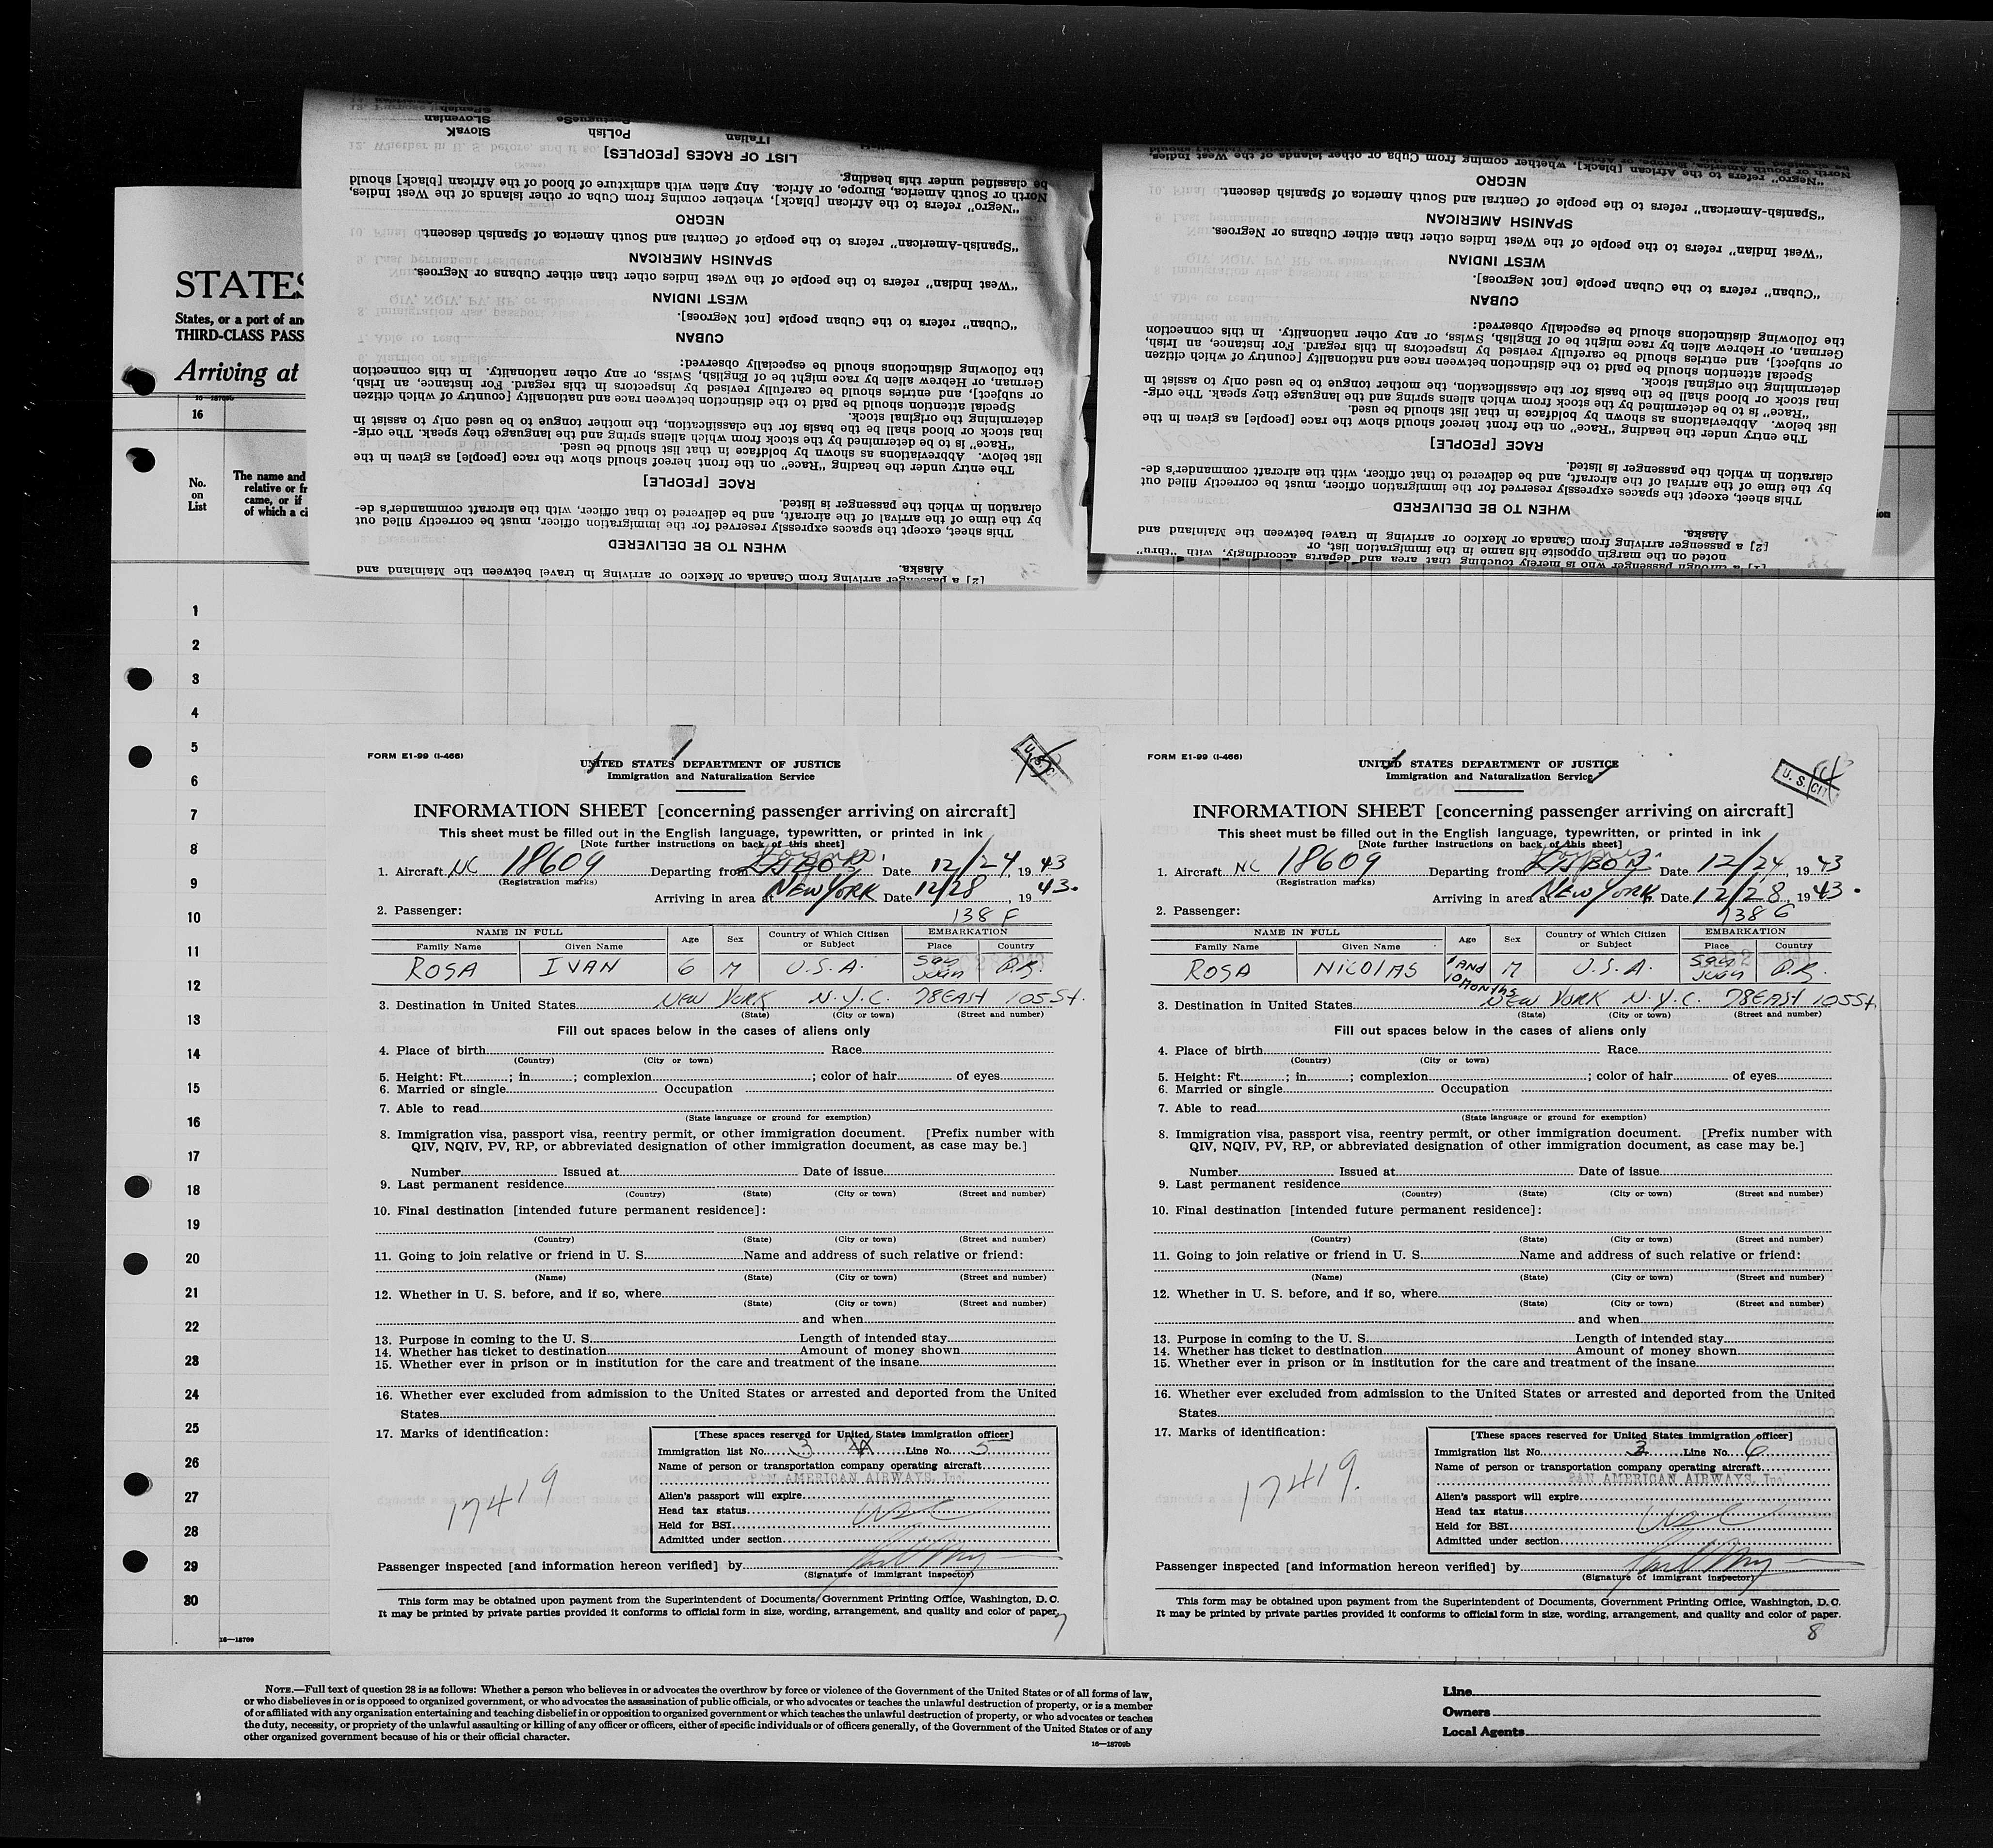 Slovenian
Portuguese
Slovak
Polish
Italian
LIST OF RACES [PEOPLES]
be classified under this heading.
North or South America, Europe, or Africa. Any alien with admixture of blood of the African [black] should
"Negro" refers to the African [black], whether coming from Cuba or other islands of the West Indies,
NEGRO
"Spanish-American" refers to the people of Central and South America of Spanish descent.
SPANISH AMERICAN
"West Indian" refers to the people of the West Indies other than either Cubans or Negroes.
WEST INDIAN
"Cuban" refers to the Cuban people [not Negroes].
CUBAN
the following distinctions should be especially observed:
German, or Hebrew alien by race might be of English, Swiss, or any other nationality. In this connection
or subject], and entries should be carefully revised by inspectors in this regard. For instance, an Irish,
Special attention should be paid to the distinction between race and nationality [country of which citizen
determining the original stock.
inal stock or blood shall be the basis for the classification, the mother tongue to be used only to assist in
"Race" is to be determined by the stock from which aliens spring and the language they speak. The orig-
list below. Abbreviations as shown by boldface in that list should be used.
The entry under the heading "Race" on the front hereof should show the race [people] as given in the
RACE [PEOPLE]
claration in which the passenger is listed.
by the time of the arrival of the aircraft, and be delivered to that officer, with the aircraft commander's de-
This sheet, except the spaces expressly reserved for the immigration officer, must be correctly filled out
WHEN TO BE DELIVERED
Alaska.
[2] a passenger arriving from Canada or Mexico or arriving in travel between the Mainland and
North or South America, Europe, or Africa.
"Negro" refers to the African [black], whether coming from Cuba or other islands of the West Indies,
NEGRO
"Spanish-American" refers to the people of Central and South America of Spanish descent.
SPANISH AMERICAN
"West Indian" refers to the people of the West Indies other than either Cubans or Negroes.
WEST INDIAN
"Cuban" refers to the Cuban people [not Negroes].
CUBAN
the following distinctions should be especially observed:
German, or Hebrew alien by race might be of English, Swiss, or any other nationality. In this connection
or subject], and entries should be carefully revised by inspectors in this regard. For instance, an Irish,
Special attention should be paid to the distinction between race and nationality [country of which citizen
determining the original stock.
inal stock or blood shall be the basis for the classification, the mother tongue to be used only to assist in
"Race" is to be determined by the stock from which aliens spring and the language they speak. The orig-
list below. Abbreviations as shown by boldface in that list should be used.
The entry under the heading "Race" on the front hereof should show the race [people] as given in the
RACE [PEOPLE]
claration in which the passenger is listed.
by the time of the arrival of the aircraft, and be delivered to that officer, with the aircraft commander's de-
This sheet, except the spaces expressly reserved for the immigration officer, must be correctly filled out
WHEN TO BE DELIVERED
Alaska.
[2] a passenger arriving from Canada or Mexico or arriving in travel between the Mainland and
noted on the margin opposite his name in the immigration list, or
[1] a through passenger who is merely touching that area and departs accordingly, with "thru"
STATES
States, or a port of an
THIRD-CLASS PASS
Arriving at
16—18709b
16
No. on List
The name and
relative or fr
came, or if
of which a ci
1
2
3
4
5
6
7
8
9
10
11
12
13
14
15
16
17
18
19
20
21
22
23
24
25
26
27
28
29
30
16—18709
FORM E1-99 (I-466)
UNITED STATES DEPARTMENT OF JUSTICE
Immigration and Naturalization Service
U.S. CI
INFORMATION SHEET [concerning passenger arriving on aircraft]
This sheet must be filled out in the English language, typewritten, or printed in ink
[Note further instructions on back of this sheet]
1. Aircraft NC 18609 Departing from LISBON Date 12/24, 1943
(Registration marks)
Arriving in area at NEW YORK Date 12/28, 1943.
2. Passenger: 138 F
NAME IN FULL Age Sex Country of Which Citizen or Subject EMBARKATION
Family Name Given Name Place Country
ROSA IVAN 6 M U.S.A. San Juan P.R.
3. Destination in United States NEW YORK N.Y.C. 78 EAST 105 St.
(State) (City or town) (Street and number)
Fill out spaces below in the cases of aliens only
4. Place of birth Race
(Country) (City or town)
5. Height: Ft. ; in. ; complexion ; color of hair of eyes
6. Married or single Occupation
7. Able to read
(State language or ground for exemption)
8. Immigration visa, passport visa, reentry permit, or other immigration document. [Prefix number with
QIV, NQIV, PV, RP, or abbreviated designation of other immigration document, as case may be.]
Number Issued at Date of issue
9. Last permanent residence
(Country) (State) (City or town) (Street and number)
10. Final destination [intended future permanent residence]:
(Country) (State) (City or town) (Street and number)
11. Going to join relative or friend in U. S. Name and address of such relative or friend:
(Name) (State) (City or town) (Street and number)
12. Whether in U. S. before, and if so, where
(State) (City or town) (Street and number)
and when
13. Purpose in coming to the U. S. Length of intended stay
14. Whether has ticket to destination Amount of money shown
15. Whether ever in prison or in institution for the care and treatment of the insane
16. Whether ever excluded from admission to the United States or arrested and deported from the United
States
17. Marks of identification:
17419
[These spaces reserved for United States immigration officer]
Immigration list No. 3 Line No. 5
Name of person or transportation company operating aircraft
PAN AMERICAN AIRWAYS, Inc.
Alien's passport will expire
Head tax status USC
Held for BSI
Admitted under section
Passenger inspected [and information hereon verified] by
(Signature of immigrant inspector)
This form may be obtained upon payment from the Superintendent of Documents, Government Printing Office, Washington, D. C.
It may be printed by private parties provided it conforms to official form in size, wording, arrangement, and quality and color of paper.
7
FORM E1-99 (I-466)
UNITED STATES DEPARTMENT OF JUSTICE
Immigration and Naturalization Service
U. S. CIT
INFORMATION SHEET [concerning passenger arriving on aircraft]
This sheet must be filled out in the English language, typewritten, or printed in ink
[Note further instructions on back of this sheet]
1. Aircraft NC 18609 Departing from LISBON Date 12/24, 1943
(Registration marks)
Arriving in area at NEW YORK Date 12/28, 1943.
2. Passenger: 138 G
NAME IN FULL Age Sex Country of Which Citizen or Subject EMBARKATION
Family Name Given Name Place Country
ROSA NICOLAS 1 AND 10 MONTHS M U.S.A. San Juan P.R.
3. Destination in United States NEW YORK N.Y.C. 78 EAST 105 St.
(State) (City or town) (Street and number)
Fill out spaces below in the cases of aliens only
4. Place of birth Race
(Country) (City or town)
5. Height: Ft. ; in. ; complexion ; color of hair of eyes
6. Married or single Occupation
7. Able to read
(State language or ground for exemption)
8. Immigration visa, passport visa, reentry permit, or other immigration document. [Prefix number with
QIV, NQIV, PV, RP, or abbreviated designation of other immigration document, as case may be.]
Number Issued at Date of issue
9. Last permanent residence
(Country) (State) (City or town) (Street and number)
10. Final destination [intended future permanent residence]:
(Country) (State) (City or town) (Street and number)
11. Going to join relative or friend in U. S. Name and address of such relative or friend:
(Name) (State) (City or town) (Street and number)
12. Whether in U. S. before, and if so, where
(State) (City or town) (Street and number)
and when
13. Purpose in coming to the U. S. Length of intended stay
14. Whether has ticket to destination Amount of money shown
15. Whether ever in prison or in institution for the care and treatment of the insane
16. Whether ever excluded from admission to the United States or arrested and deported from the United
States
17. Marks of identification:
17419.
[These spaces reserved for United States immigration officer]
Immigration list No. 3 Line No. 6
Name of person or transportation company operating aircraft
PAN AMERICAN AIRWAYS, Inc.
Alien's passport will expire
Head tax status USC
Held for BSI
Admitted under section
Passenger inspected [and information hereon verified] by
(Signature of immigrant inspector)
This form may be obtained upon payment from the Superintendent of Documents, Government Printing Office, Washington, D. C.
It may be printed by private parties provided it conforms to official form in size, wording, arrangement, and quality and color of paper.
8
NOTE.—Full text of question 28 is as follows: Whether a person who believes in or advocates the overthrow by force or violence of the Government of the United States or of all forms of law,
or who disbelieves in or is opposed to organized government, or who advocates the assassination of public officials, or who advocates or teaches the unlawful destruction of property, or is a member
of or affiliated with any organization entertaining and teaching disbelief in or opposition to organized government or which teaches the unlawful destruction of property, or who advocates or teaches
the duty, necessity, or propriety of the unlawful assaulting or killing of any officer or officers, either of specific individuals or of officers generally, of the Government of the United States or of any
other organized government because of his or their official character.
16—18709b
Line
Owners
Local Agents